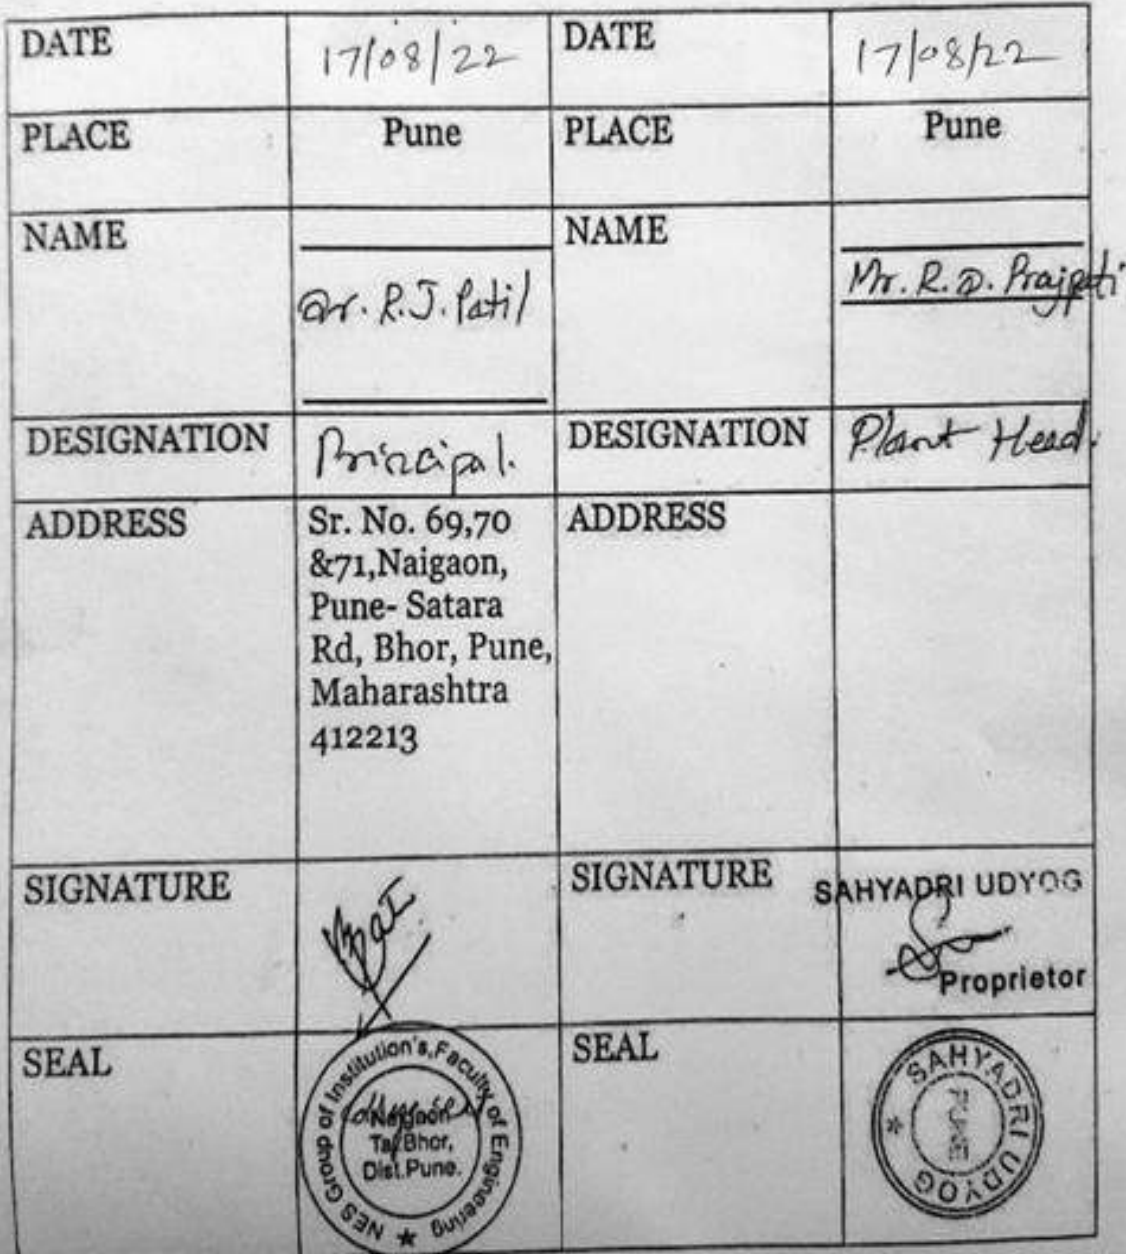 DATE 17/08/22 DATE 17/08/22
PLACE Pune PLACE Pune
NAME Dr. R.J. Patil NAME Mr. R.D. Prajpati
DESIGNATION Principal. DESIGNATION Plant Head.
ADDRESS Sr. No. 69,70 ADDRESS
&71,Naigaon,
Pune- Satara
Rd, Bhor, Pune,
Maharashtra
412213
SIGNATURE SIGNATURE SAHYADRI UDYOG
Proprietor
SEAL SEAL
NES Group of Institution's, Faculty of Engineering
Naigaon
Tal.Bhor,
Dist.Pune.
SAHYADRI UDYOG
PUNE